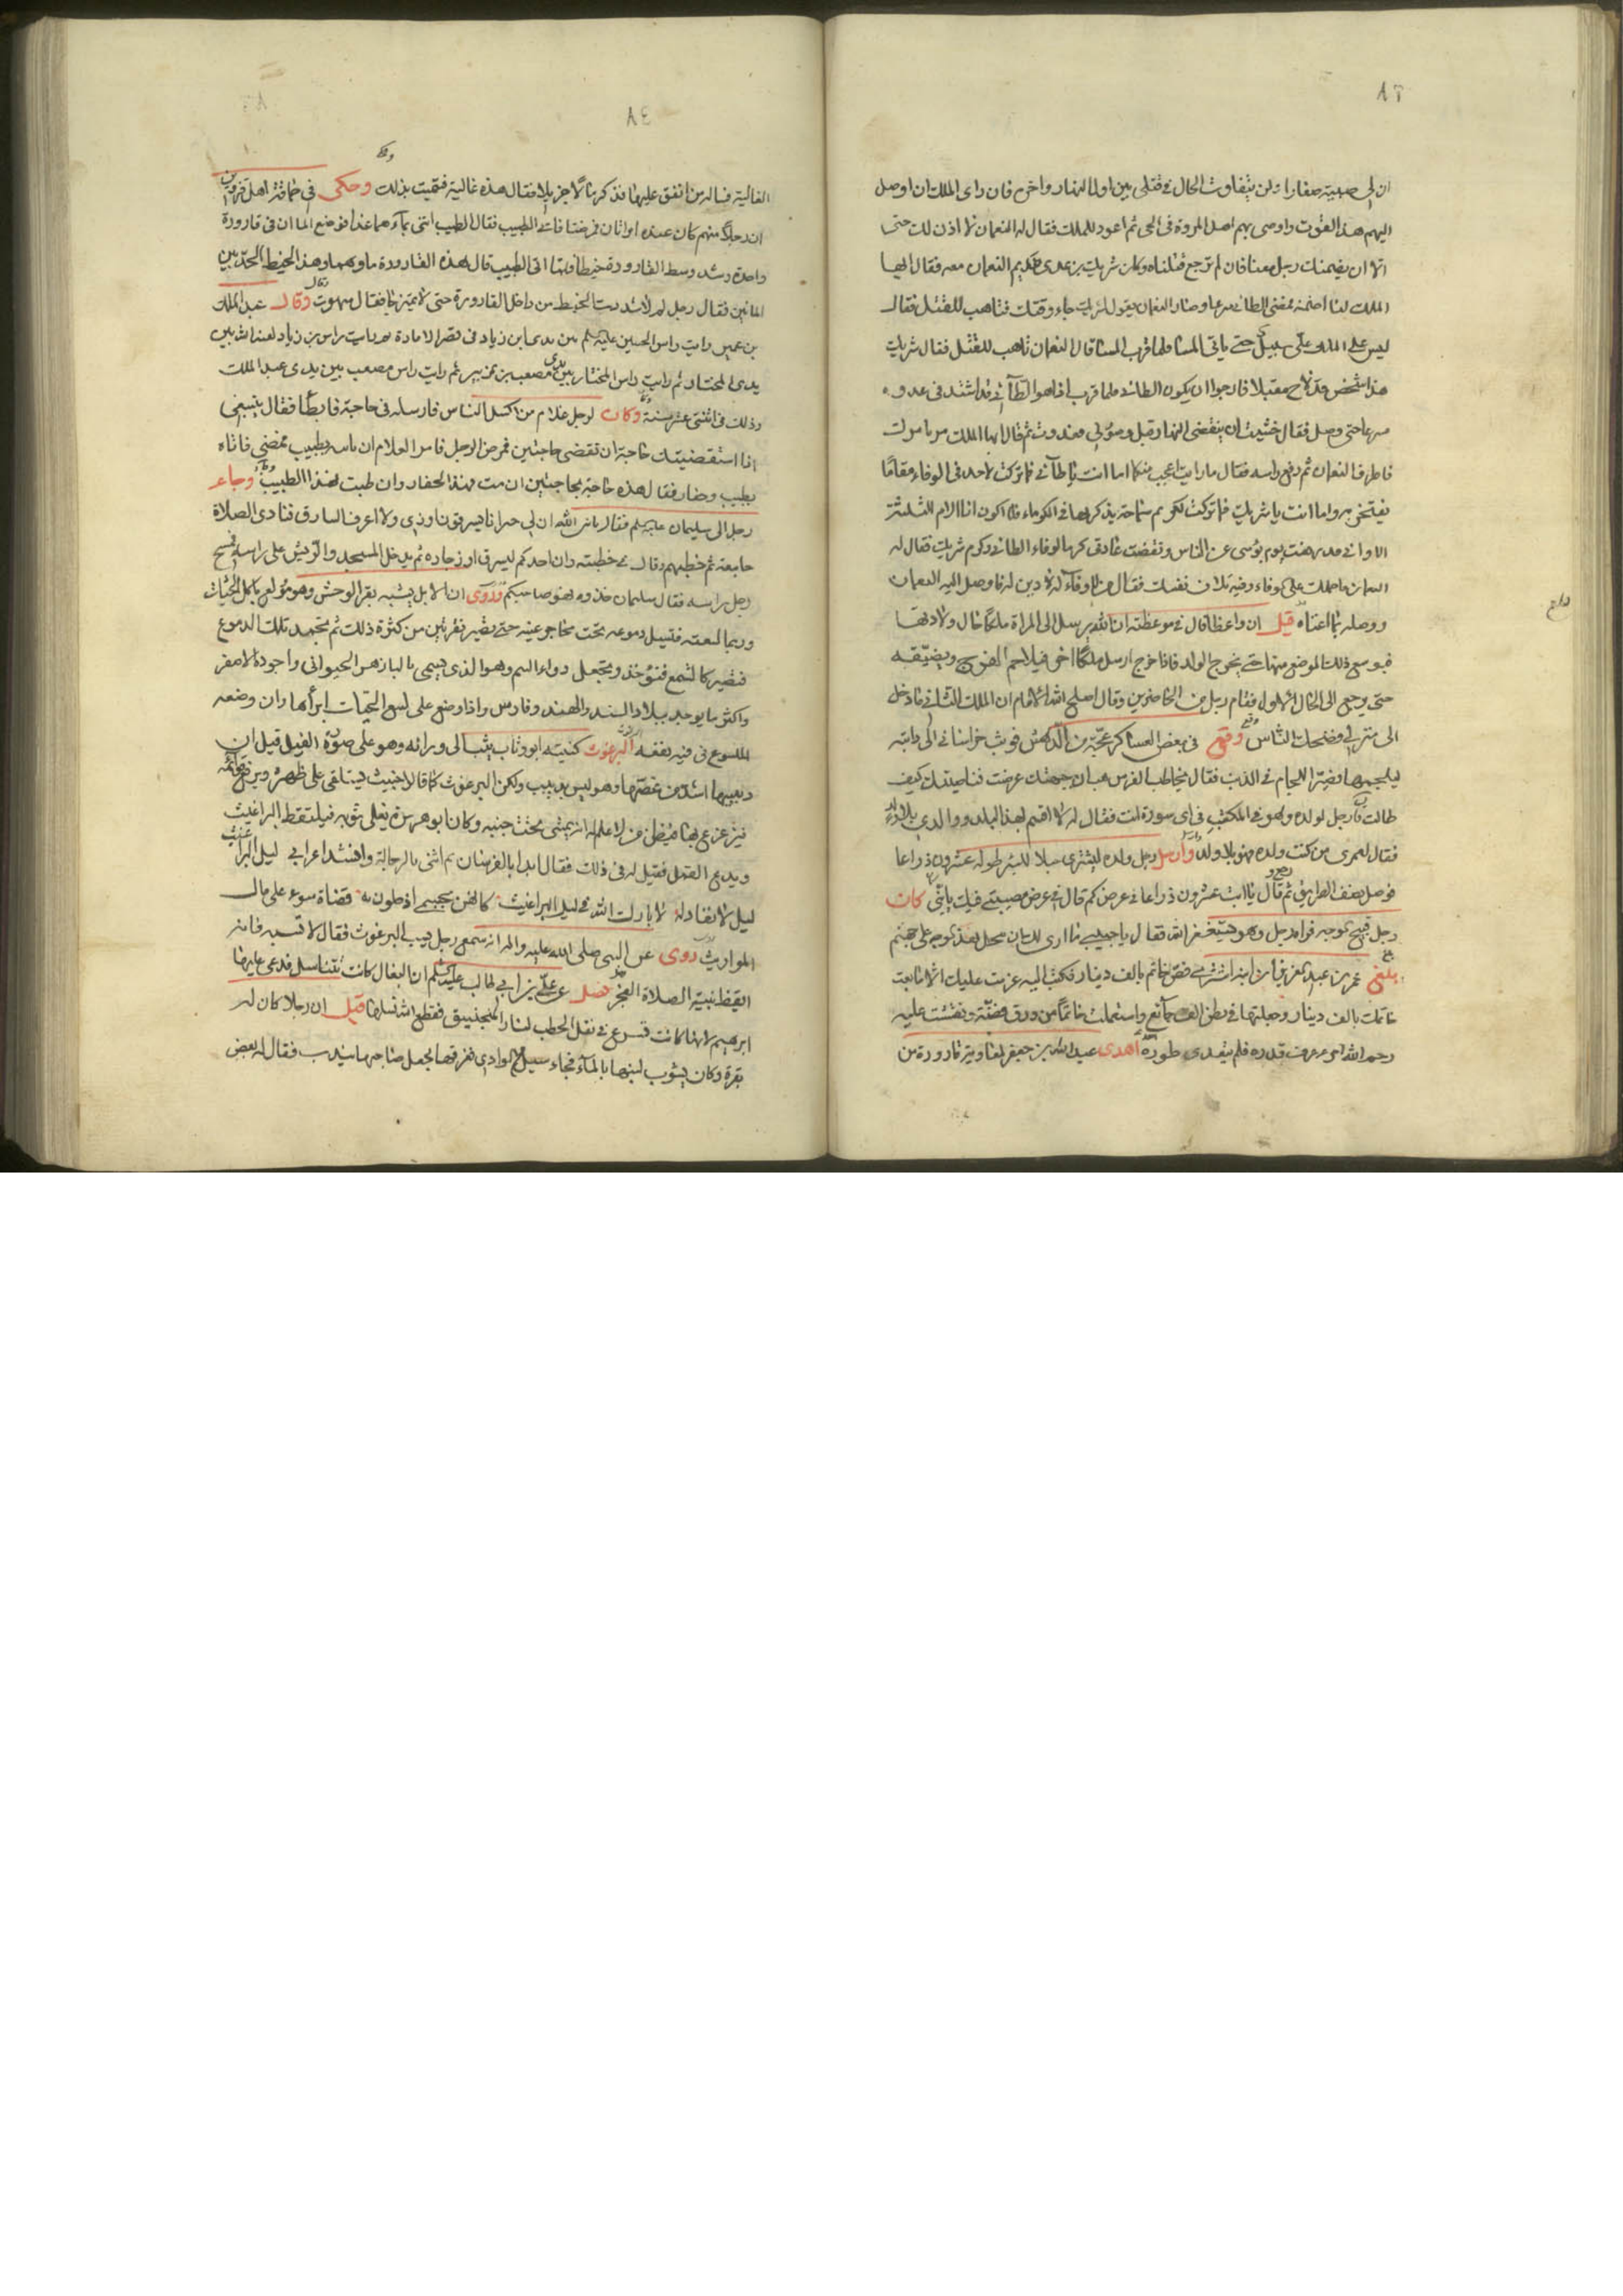 ٨٣
ان لي صبية صغارا ولن يتفاوت الحال في قتلي بين اول النهار واخره فان راى الملك ان اوصل
اليهم هذا القوت واوصى بهم اهل المروة في الحي ثم اعود للملك فقال له النعمان لا اذن لك حتى
الا ان يضمنك رجل معنا فان لم ترجع قتلناه وكان شريك بن عدي نديم النعمان معه فقال ايها
الملك انا اضمنه فمضى الطائي مسرعا وصار النعمان يقول لشريك جاء وقتك فتاهب للقتل فقال
ليس على الملك على سبيل حتى ياتي المسا فلما قرب المسا قال النعمان تاهب للقتل فقال شريك
هذا شخص قد لاح مقبلا فارجوا ان يكون الطائي فلما قرب اذا هو الطائي قد اشتد في عدوه
مسرعا حتى وصل فقال خشيت ان ينقضى النهار قبل وصولي فعدوت ثم قال ايها الملك مر بامرك
فاطرق النعمان ثم رفع راسه فقال ما رايت اعجب منكما اما انت يا طائي فما تركت لاحد في الوفاء مقاما
يفتخر به واما انت يا شريك فما تركت لكريم سماحة يذكر بها في الكرماء فلا اكون انا الام الثلثة
الا واني قد رفعت يوم بوسى عن الناس ونقضت عادتي كرما لوفاء الطائي وكرم شريك فقال له
النعمان ما حملك على الوفاء وفيه تلاف نفسك فقال من لا وفاء له لا دين له فاوصل اليه النعمان
ووصله بما اغناه قيل ان واعظا قال في موعظته ان الله يرسل الى المراة ملكا حال ولادتها
فيوسع ذلك الموضع منها حتى يخرج الولد فاذا خرج ارسل ملكا اخر فيلاحم الفرج ويضيقه
حتى يرجع الى الحال الاول فقام رجل من الحاضرين وقال اصلح الله الامام ان الملك الثاني ما دخل
الى منزلي فضحك الناس وقع في بعض العساكر فوثب خراساني الى دابته
ليلجمها فصير اللجام في الذنب فقال يخاطب الفرس هب ان جبهتك عرضت فناصيتك كيف
طالت قال رجل لولده وهو في المكتب في اي سورة انت فقال له لا اقسم بهذا البلد ووالدي بلا ولد
فقال لعمري من كنت ولده فهو بلا ولد وارسل رجل ولده ليشترى حبلا للبئر طوله عشرون ذراعا
فوصل نصف الطريق ثم رجع وقال يا ابت عشرون ذراعا في عرض كم قال في عرض مصيبتي فيك يا بنى كان
رجل قبيح الوجه فراه رجل وهو يستغفر الله فقال يا حبيبي ما ارى لك ان تبخل بهذا الوجه على جهنم
بلغ عمر بن عبد العزيز ان ابنه اشترى فص خاتم بالف دينار فكتب اليه عزمت عليك الا ما بعت
خاتمك بالف دينار وجعلتها في بطن الف جائع واستعملت خاتما من ورق فضة ونقشت عليه
رحم الله امرء عرف قدره فلم يتعدى طوره اهدى عبد الله بن جعفر لمعاوية قارورة من
٨٤
الغالية فساله من انفق عليها فذكر مالا جزيلا فقال هذه غالية فسميت بذلك وحكى في حماقة اهل قزوين
ان رجلا منهم كان عنده امراتان فمرضتا فاتى الطبيب فقال الطبيب ائتني بماءهما غدا فوضع الماان في قارورة
واحدة وشد وسط القارورة خيطا فلما اتى الطبيب قال هذه القارورة ماوهما وهذا الخيط الحد بين
المائين فقال رجل لم لا شددت الخيط من داخل القارورة حتى لا يمتزجا وقال عبد الملك
بن عمير رايت راس الحسين عليه السلم بين يدي ابن زياد في قصر الامارة ثم رايت راس بن زياد لعنه الله بين
يدي المختار ثم رايت راس المختار بين يدي مصعب بن زبير ثم رايت راس مصعب بين يدي عبد الملك
وذلك في اثنتي عشر سنة وكان لرجل غلام من اكسل الناس فارسله في حاجة فابطأ فقال ينبغي
اذا استقضيتك حاجة ان تقضى حاجتين فمرض الرجل فامر الغلام ان ياتيه بطبيب فمضى فاتاه
بطبيب وحفار فقال هذه حاجة بحاجتين ان مت فهذا الحفار وان طبت فهذا الطبيب وجاء
رجل الى سليمان عليه السلم فقال يا نبي الله ان لي جيرانا يسرقون اوزي ولا اعرف السارق فنادى الصلاة
جامعة ثم خطبهم وقال في خطبته وان احدكم ليسرق اوز جاره ثم يدخل المسجد والريش على راسه فمسح
رجل راسه فقال سليمان خذوه فهو صاحبكم وروى ان الابل يشبه بقر الوحش وهو مولع باكل الحيات
وربما لسعته فتسيل دموعه تحت محاجر عينيه حتى تصير نقرتين من كثرة ذلك ثم تجمد تلك الدموع
فتصير كالشمع فتؤخذ وتجعل دواء السم وهو الذي يسمى بالبازهر الحيواني واجوده الاصفر
واكثر ما يوجد ببلاد السند والهند وفارس واذا وضع على لسع الحيات ابرأها وان وضعه
الملسوع في فيه نفعه البرغوث كنيته ابو وثاب يثب الى ورائه وهو على صورة الفيل قيل ان
دبيبها اشد من عضتها وهو ليس بدبيب ولكن البرغوث كما قال خبيث يستلقى على ظهره ويرفع قوائمه
فيزعزع بها فيظن من لا علم له انه يمشى تحت جنبه وكان ابو هريرة يفلى ثوبه فيلتقط البراغيث
ويدع القمل فقيل له في ذلك فقال ابدا بالفرسان ثم اثنى بالرجالة وانشد اعرابي ليل البراغيث
ليل لا نفاد له لا بارك الله في ليل البراغيث كانهن بجسمي اذ خلون به قضاة سوء على مال
المواريث روى عن النبي صلى الله عليه واله انه سمع رجل يسب البرغوث فقال لا تسبه فانه
ايقظ نبيا لصلاة الفجر فصل عن علي بن ابي طالب عليه السلم ان البغال كانت تتناسل فدعى عليها
ابرهيم لانها كانت تسرع في نقل الحطب لنار المنجنيق فقطع الله نسلها قيل ان رجلا كان له
بقرة وكان يشوب لبنها بالماء فجاء سيل في الوادي فغرقها فجعل صاحبها يندب فقال له بعض